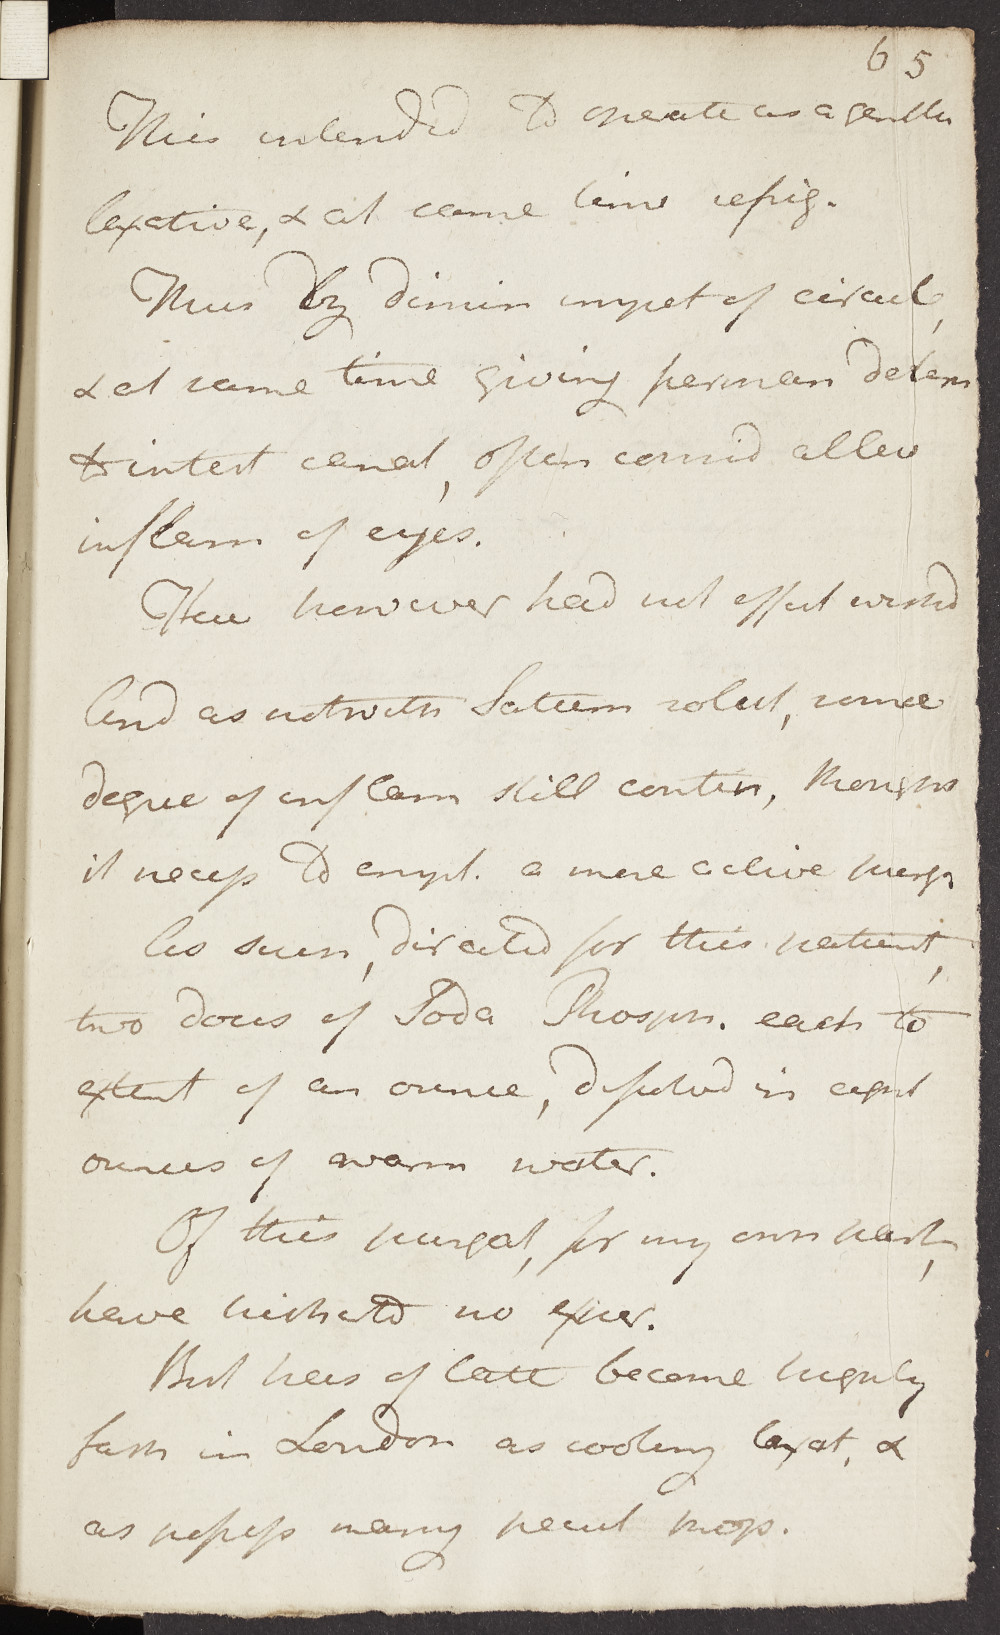 65
This intended to operate as a gentle
laxative, & at same time refrig.
Thus by dimin impet of circul,
& at same time giving perman determ
to intest canal, often consid allev
inflam of eyes.
These however had not effect wished
And as notwith Saturn solut, some
degree of inflam still contin, thought
it necess to empl. a more active purg
As such, directed for this patient,
two doses of Soda Phosph. each to
extent of an ounce, dissolved in eight
ounces of warm water.
Of this purgat, for my own part,
have hitherto no exper.
But has of late become highly
fash in London as cooling laxat, &
as possess many pecul prop.